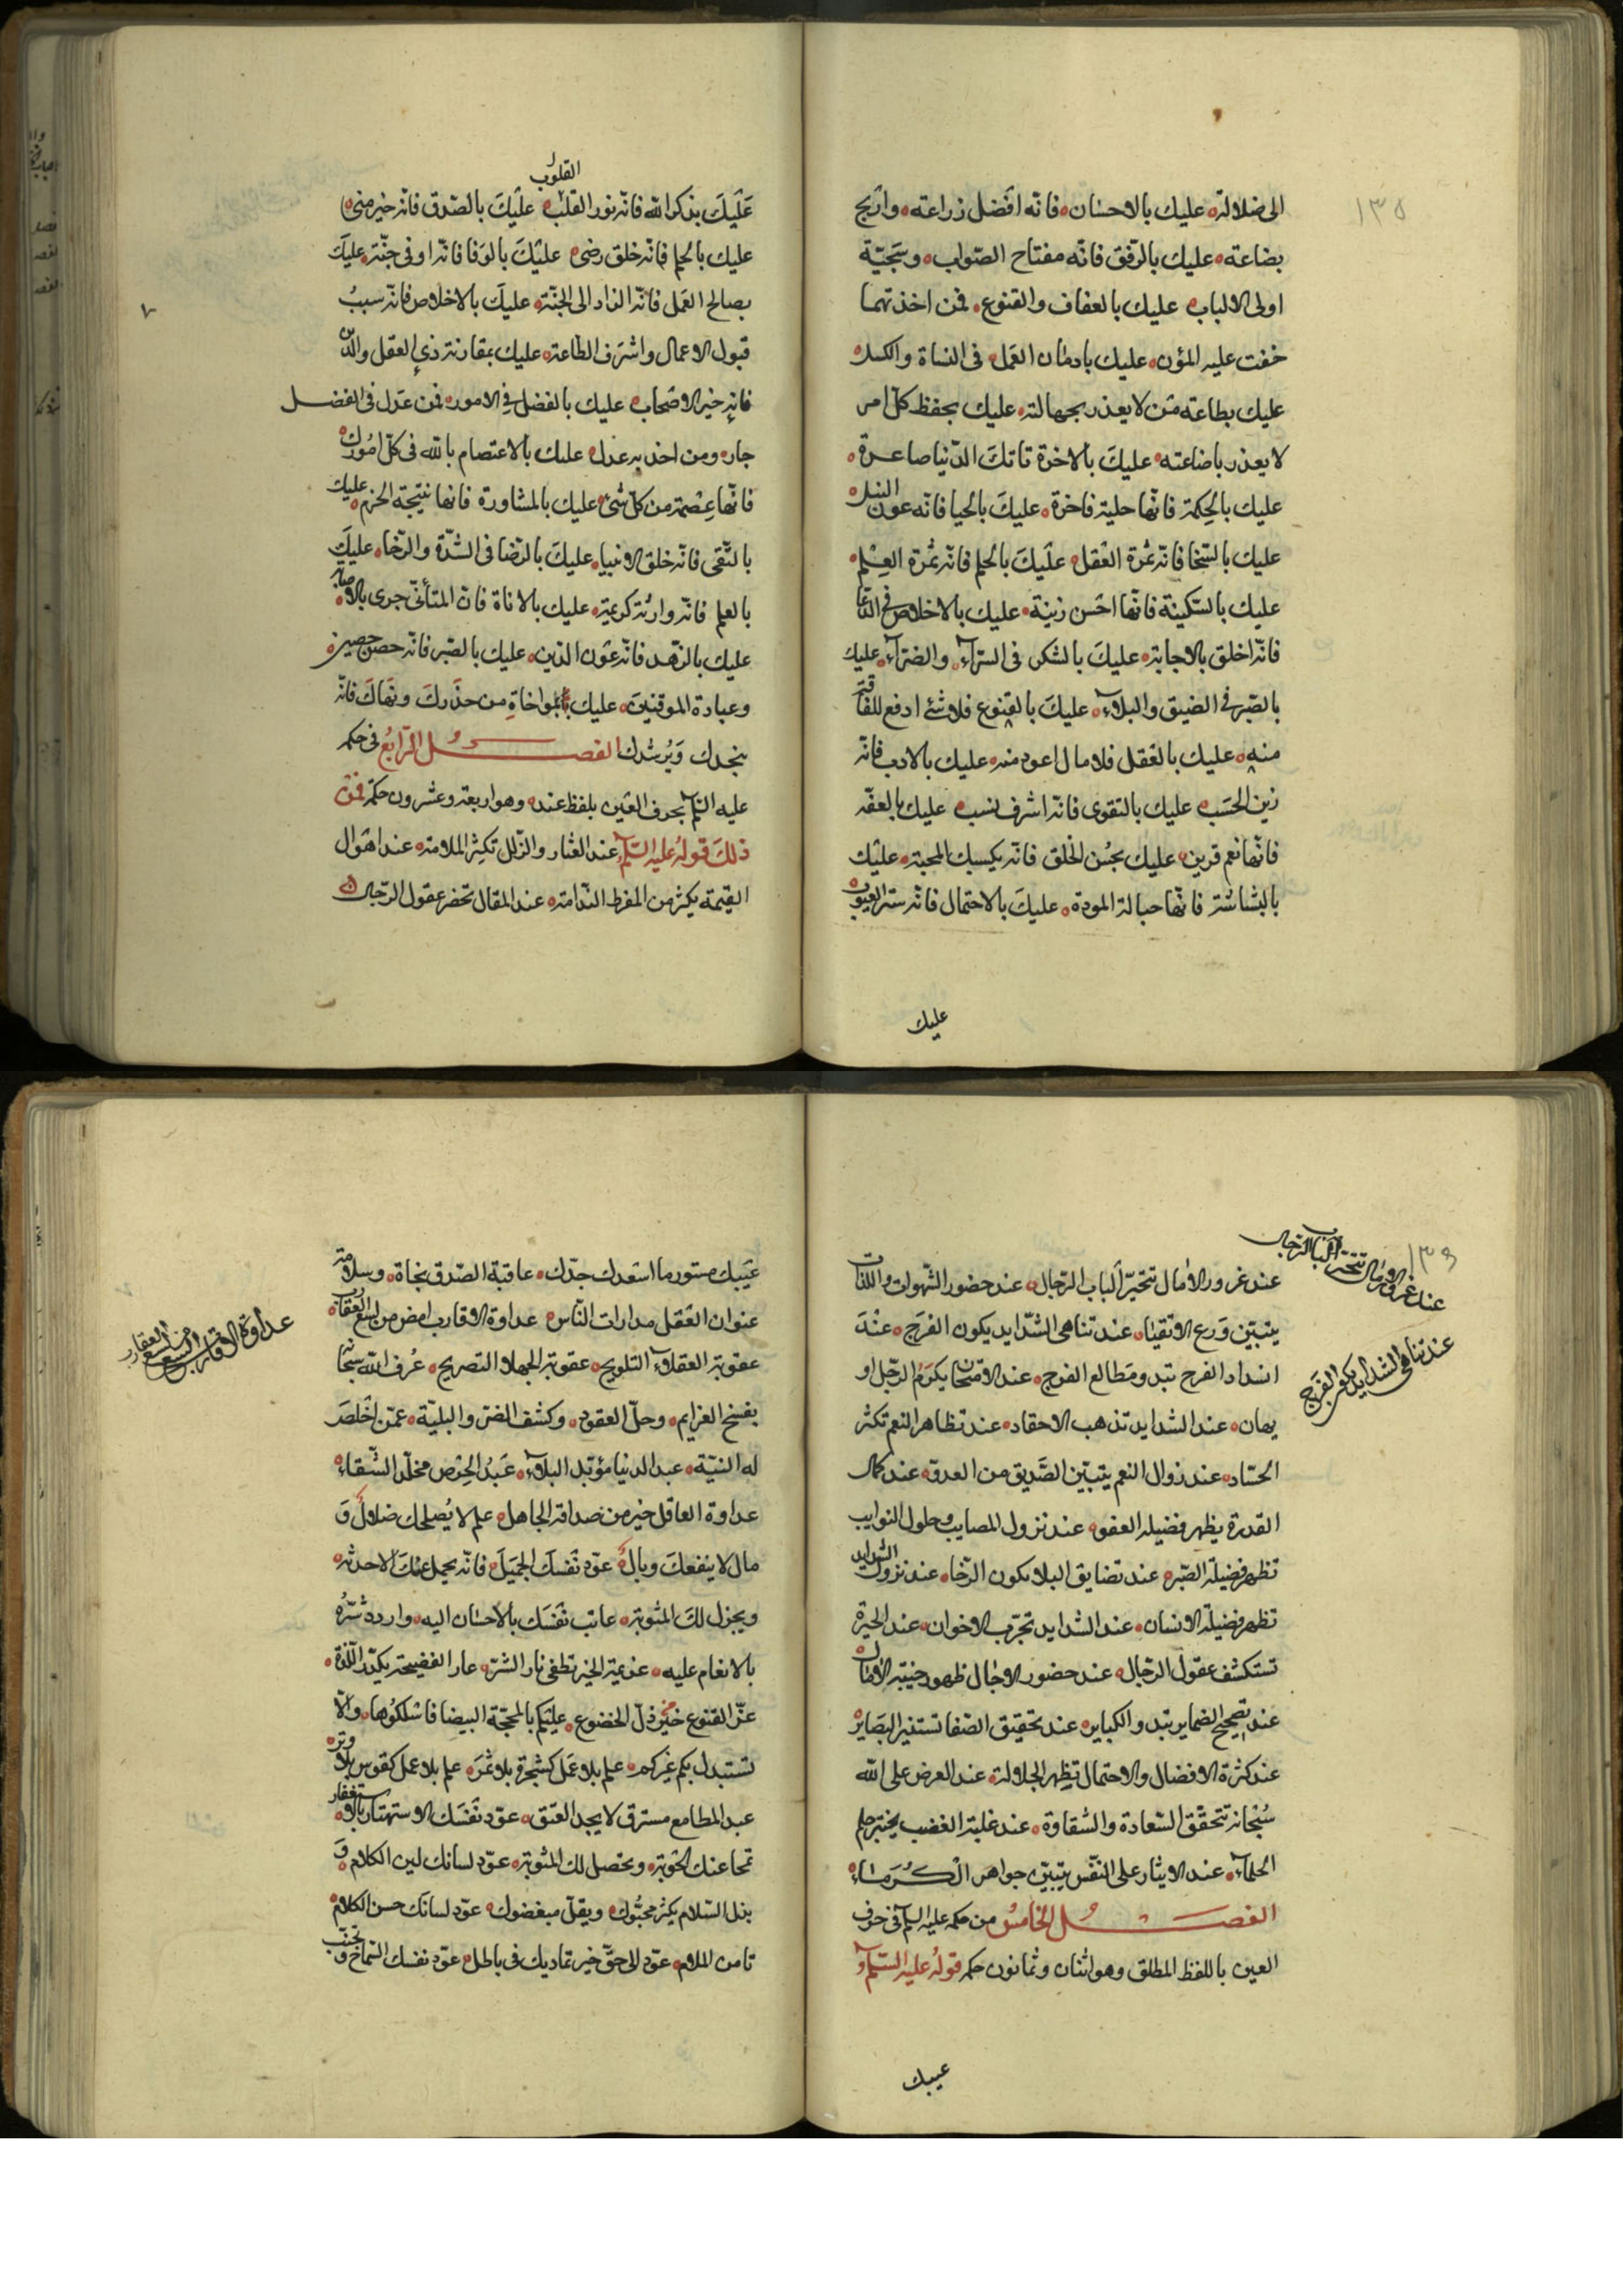 ١٣٥
الى ضلالة عليك بالاحسان فانه افضل زراعة واربح
بضاعة عليك بالرّفق فانّه مفتاح الصّواب وسَجيّة
اولى الالباب عليك بالعفاف والقنوع فمن اخذ بهما
خفت عليه المؤن عليك بادمان العَمل فى النشاة والكسل
عليك بطاعة مَن لا يعذر بجهالته عليك بحفظ كلّ امر
لا يعذر باضاعته عليكَ بالاخرة تاتكَ الدّنيا صاغرة
عليك بالحِكمة فانّها حلية فاخرة عليكَ بالحيا فانّه عون النبل
عليك بالسّخا فانّه ثمرة العقل عليكَ بالحلم فانّه ثمرة العِلم
عليك بالسّكينة فانّها احسن زينة عليك بالاخلاص فى الدّعا
فانّه اخلق بالاجابة عليكَ بالشكر فى السرّاء والضرّاء عليك
بالصّبر فى الضيق والبلاء عليكَ بالقنوع فلا شئ ادفع للفاقة
منه عليك بالعقل فلا مال اعود منه عليك بالادب فانّه
زين الحَسَب عليك بالتقوى فانّه اشرف نسب عليك بالعفّه
فانّها نعم قرين عليك بحُسن الخلق فانّه يكسبك المحبة عليك
بالبشاشة فانّها حبالة المودة عليكَ بالاحتمال فانّه ستر العيوب
عليك
القلوب
عَليكَ بذكر الله فانّه نور القلب عليكَ بالصّدق فانّه خير مبنى
عليك بالحلم فانّه خلق رضى عليكَ بالوَفا فانّه اوفى جنّة عليكَ
بصالح العَمل فانّه الزاد الى الجنّة عليكَ بالاخلاص فانّه سببُ
قبول الاعمال واشرَف الطاعة عليك بمقارنة ذى العقل والدّين
فانه خير الاصحاب عليك بالفضل فى الامور فمن عدَل فى الفضل
جار ومن اخذ به عدل عليك بالاعتصام بالله فى كلّ امُورك
فانّها عِصْمة من كلّ شئ عليك بالمشاورة فانها نتيجة الحزم عليك
بالتّقى فانّه خلق الانبيا عليكَ بالرّضا فى الشدّة والرّخا عليكَ
بالعلم فانّه وارثة كريمة عليك بالاناة فان المتأنّى حرى بالاصابة
عليك بالزّهد فانّه عَون الدّين عليك بالصّبر فانّه حصن حصين
وعبادة الموقنينَ عليك بمواخاةِ من حذّركَ ونهَاكَ فانّه
ينجدك وَيُرشدك الفصــلُ الرّابعُ فى حكمه
عليه السّلام بحرف العَين بلفظ عند وهو اربعة وعشرون حكمة فمن
ذلكَ قولهُ عليه السّلام عند العثار والزّلل تكثر الملامة عند اهوَال
القيمة يكثر من المفرط النّدامة عند المقال تحضر عقول الرّجال
١٣٦
عند غرور الامال تتخيّر ألباب الرّجال
عند تناهى الشدايد يكون الفرَج
عند غرور الامال تتخيّر ألباب الرّجال عند حضور الشّهوات واللذات
يتبيّن وَرع الاتقيا عند تناهى الشّدايد يكون الفَرج عندَ
انسداد الفرج تبدو مَطالع الفرج عند الامتحان يكرَم الرّجل او
يهان عند الشدايد تذهب الاحقاد عند تظاهر النعم تكثر
الحُسّاد عند زوال النعم يتبيّن الصَّديق من العدوّ عند كمال
القدرة يظهر فضيلة العفو عند نزول المصايب وحلول النوايب
تظهر فضيلة الصّبر عند تضايق البلا يكون الرّخا عند نزول الشدايد
تظهر فضيلة الانسان عند الشدايد تجرّب الاخوان عند الحيرة
تستكشف عقول الرّجال عند حضور الاجال ظهور خيبة الامال
عند تصحيح الضماير تبدو الكباير عند تحقيق الصّفا تستنير البَصَاير
عند كثرة الافضال والاحتمال تظهر الجلالة عند العرض على الله
سُبْحانه تتحقّق السّعادة والشقاوة عند غلبة الغضب يختبر حلم
الحلماء عند الايثار على النفْس يتبيّن جواهر الكُرَماء
الفصَــلُ الخامسُ من حكمه عليه السّلام فى حرف
العين باللفظ المطلق وهو اثنان وثمانون حكمه قولهُ عليه السّلام
عيبك
عيبك مستور ما اسعدك جدّك عاقبة الصّدق نجاة وسلامة
عنوان العَقل مدارات النّاس عداوة الاقارب امض من لسع العقارب
عقوبة العقلاء التلويح عقوبة الجهلا التصريح عُرف الله سُبحانه
بفسخ العزايم وحلّ العقود وكشف الضر والبليّة عمّن اخلصَ
له النيّة عبد الدنيا مؤبّد البلاء عَبدُ الحِرْص مخلّد الشّقاء
عداوة العاقل خير من صداقة الجاهل علم لا يُصلحك ضلالٌ وَ
مال لا ينفعكَ وبالٌ عوّد نفسَكَ الجَميَل فانّه يجمل عنكَ الاحدثه
ويجزل لكَ المثوبة عاتب نَفسَك بالاحسان اليه واردد شرّهُ
بالانعام عليه عزيمة الخير تطفى نار الشرّ عار الفضيحة يكدّر اللّذة
عزّ القنوع خيرٌ من ذلّ الخضوع عليكم بالمحجّة البيضا فاسْلكُوها والّا
تستبدل بكم غيركم علم بلا عَمل كشجرة بلا ثمَر علم بلا عمل كقوس بلا وتر
عبد المطامع مسترق لا يجد العتق عوّد نَفسَك الاستهتار بالاستغفار
تمحا عنك الحوبة وتحصل لك المثوبة عوّد لسانك لين الكلام وَ
بذل السّلام يكثر محبّوك ويقلّ مبغضوك عوّد لسانَك حسن الكلام
تا من الملام عوّد الى الحقّ خير تماديك فى باطل عوّد نفسك السّماح وتجنّب
عداوة الاقارب من لسع العقارب